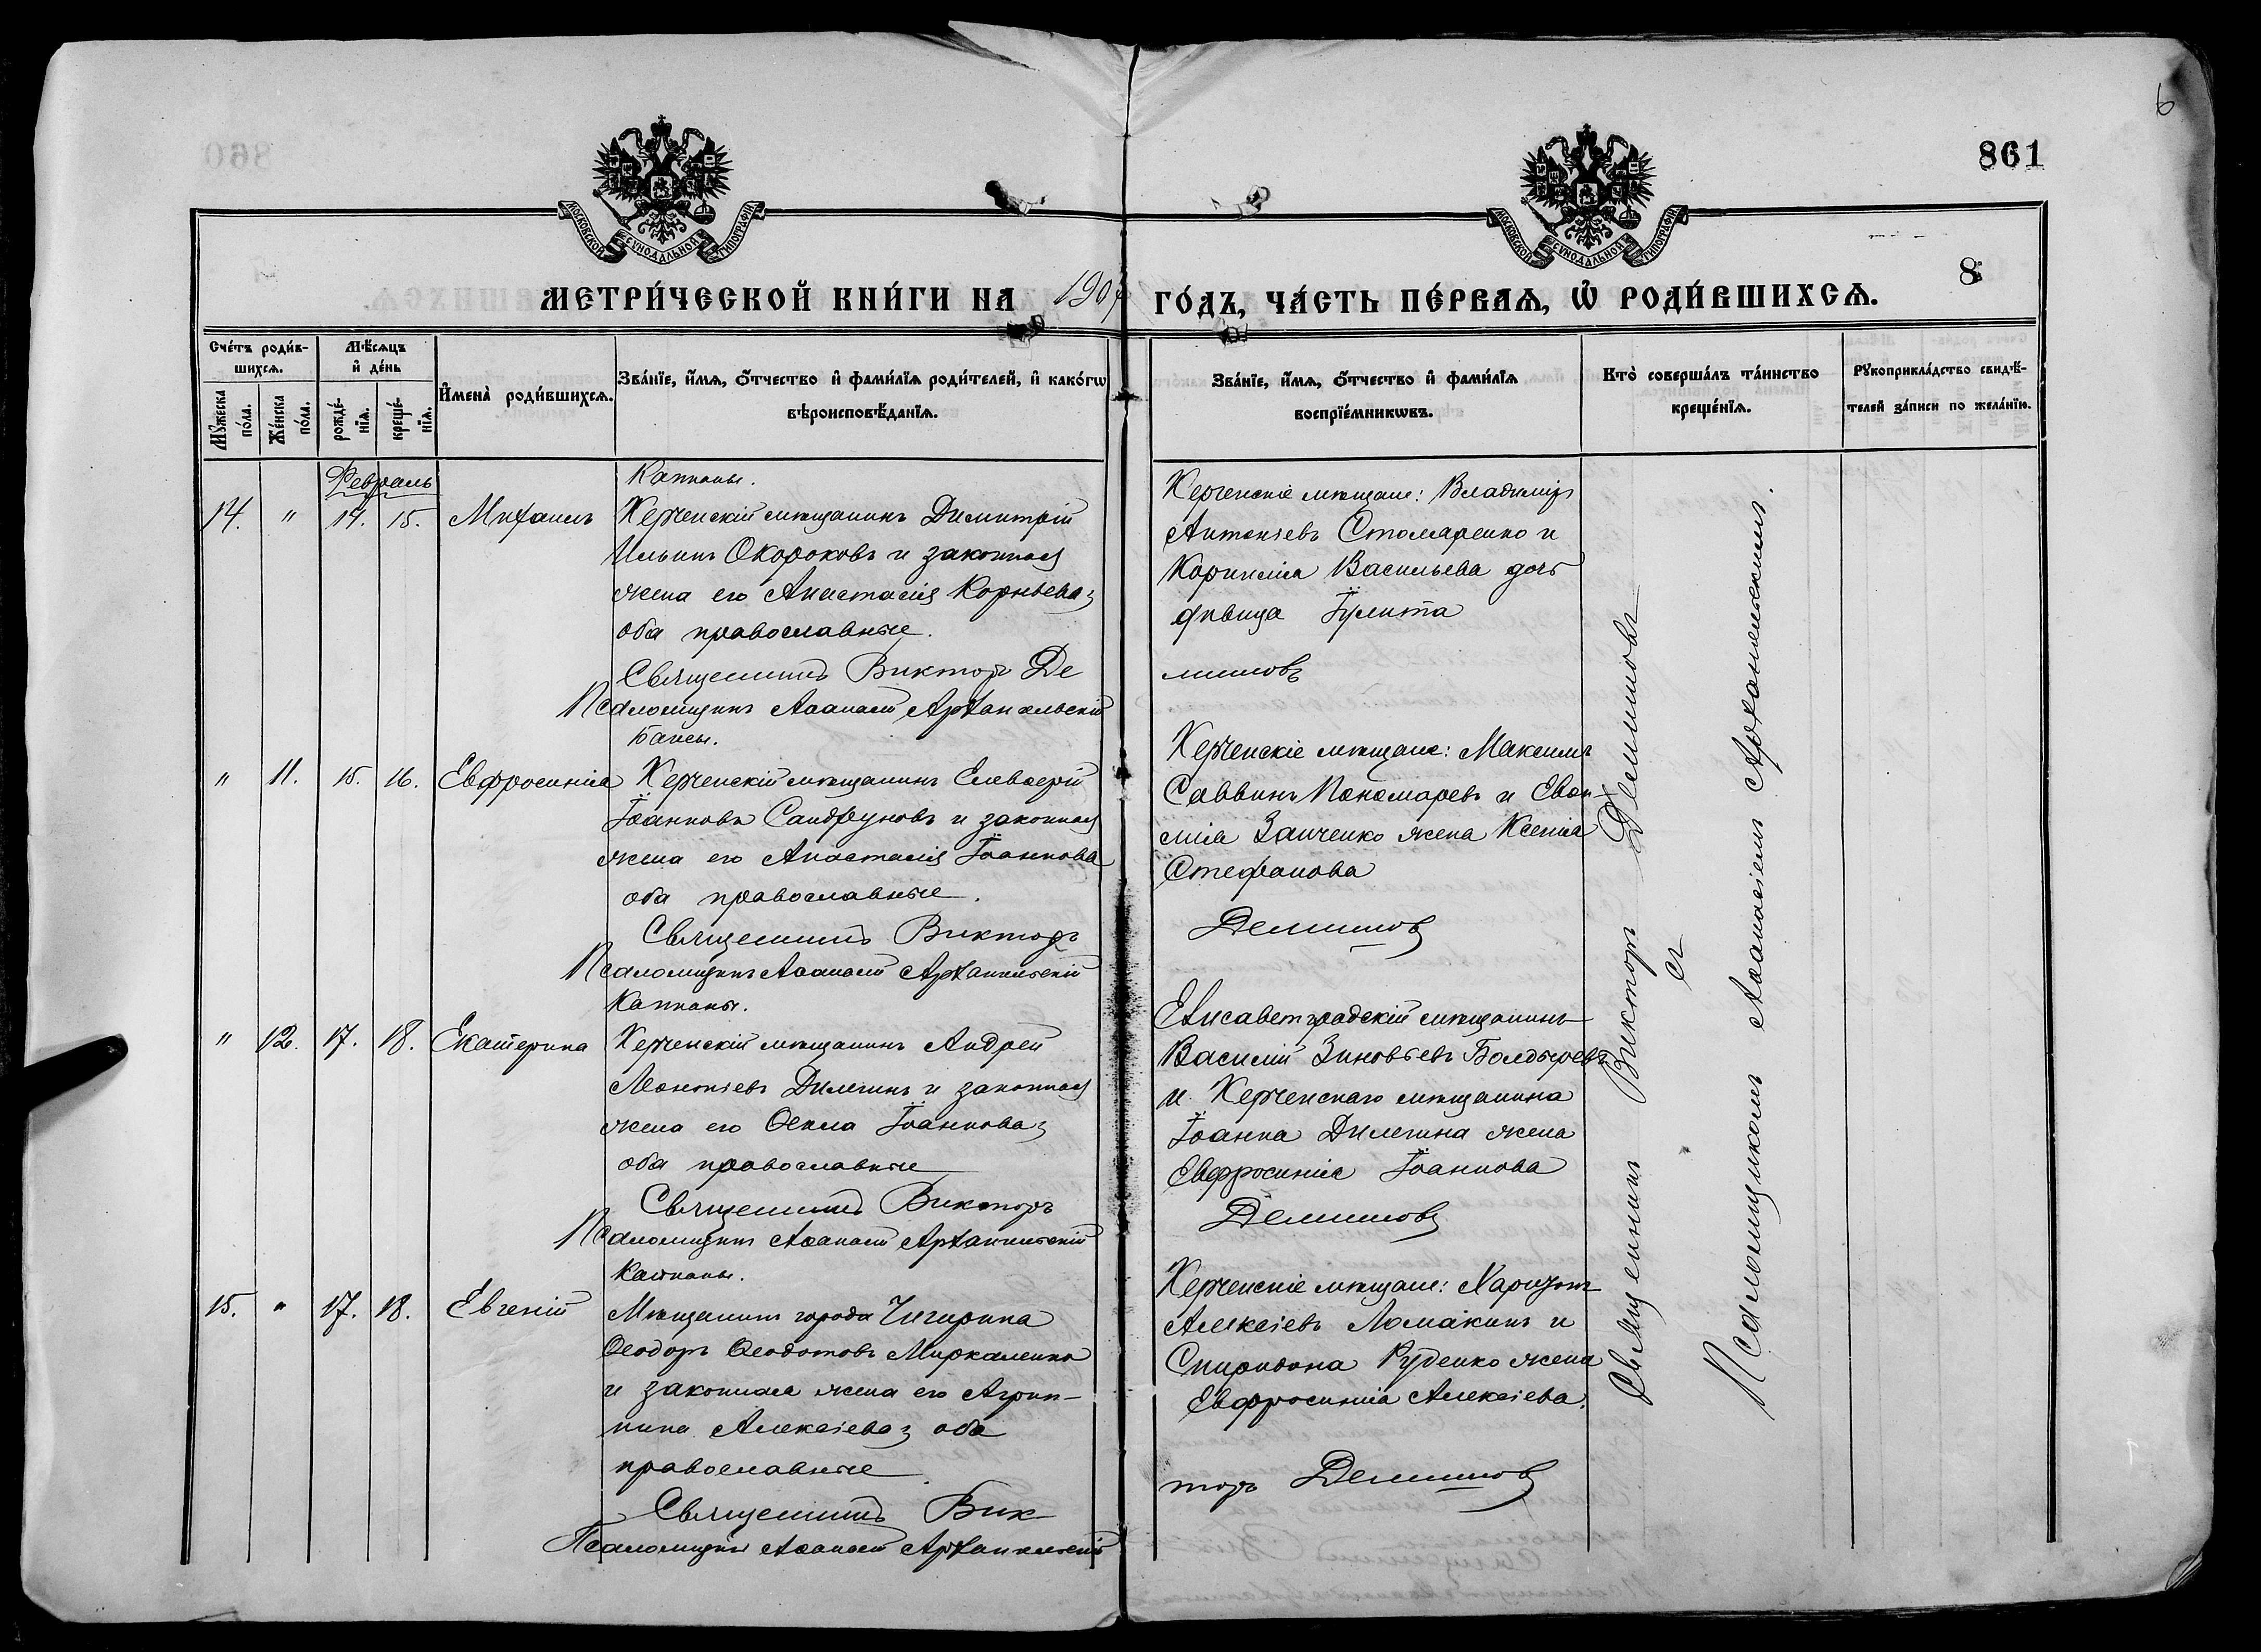 6
861
МОСКОВСКОЙ СѴНОДАЛЬНОЙ ТИПОГРАФІИ
МОСКОВСКОЙ СѴНОДАЛЬНОЙ ТИПОГРАФІИ
8
МЕТРИ́ЧЕСКОЙ КНИ́ГИ НА 1907 ГО́ДЪ, ЧА́СТЬ ПЕ́РВАѦ, Ѡ РОДИ́ВШИХСѦ.
Сче́тъ роди́в-
шихсѧ.
Мꙋжеска по́ла.
Же́нска по́ла.
Мѣ́сѧцъ
и҆ де́нь
рожде́-
нїѧ.
креще́-
нїѧ.
И҆мена̀ роди́вшихсѧ.
Зва́нїе, и҆́мѧ, ѻ҆́тчество и҆ фами́лїѧ роди́телей, и҆ како́гѡ
вѣроисповѣ́данїѧ.
Зва́нїе, и҆́мѧ, ѻ҆́тчество и҆ фами́лїѧ
воспрїе́мникѡвъ.
Кто̀ соверша́лъ та́инство
креще́нїѧ.
Рꙋкоприкла́дство свидѣ́-
телей за́писи по жела́нїю.
Февраль
14. " 14. 15. Михаилъ
Керченскій мѣщанинъ Димитрій
Ильинъ Окороковъ и законная
жена его Анастасія Корнѣева;
оба православные.
Священникъ Викторъ Де
Псаломщикъ Аѳанасій Архангельскій
Керченскіе мѣщане: Владиміръ
Антоніевъ Столяренко и
Васильева дочь
дѣвица
мишовъ
" 11. 15. 16. Евфросинія
Керченскій мѣщанинъ Елевѳерій
Іоанновъ и законная
жена его Анастасія Іоаннова
оба православные.
Священникъ Викторъ
Псаломщикъ Аѳанасій Архангельскій
Керченскіе мѣщане: Максимъ
Саввинъ Пономаревъ и Евѳи-
мія Заиченко жена Ксенія
Стефанова
Демишовъ
" 12. 17. 18. Екатерина
Керченскій мѣщанинъ Андрей
Леонтіевъ Дилигинъ и законная
жена его Ѳекла Іоаннова;
оба православные
Священникъ Викторъ
Псаломщикъ Аѳанасій Архангельскій
Елисаветградскій мѣщанинъ
Василій Зиновьевъ Болдыревъ
и Керченскаго мѣщанина
Іоанна Дилигина жена
Евфросинія Іоаннова
Демишовъ
15. " 17. 18. Евгеній
Мѣщанинъ города Чигирина
Ѳеодоръ Ѳеодотовъ Миркаленко
и законная жена его Агрип-
пина Алексіева; оба
православные
Священникъ Вик-
Псаломщикъ Аѳанасій Архангельскій
Керченскіе мѣщане: Харитонъ
Алексіевъ Ломакинъ и
Спиридона Руденко жена
Евфросинія Алексіева.
торъ Демишовъ
Священникъ Викторъ Демишовъ
съ
Псаломщикомъ Аѳанасіемъ Архангельскимъ.